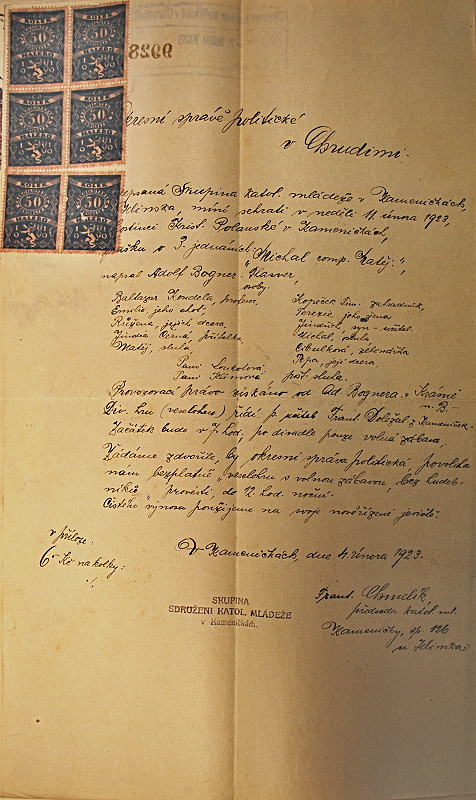 KOLEK 50 HALÉŘŮ
KOLEK 50 HALÉŘŮ
KOLEK 50 HALÉŘŮ
KOLEK 50 HALÉŘŮ
KOLEK 50 HALÉŘŮ
KOLEK 50 HALÉŘŮ
9928
kresní správě politické
v Chrudimi.
epsaná Skupina katol. mládeže v Kameničkách,
Hlinska, míní sehrati v neděli 11. února 1923,
ostinci Krist. Polanské v Kameničkách,
o 3. jednáních: "Michal comp. Matěj.",
napsal Adolf Bogner-
osoby:
Baltazar Koudela, profesor,
Emilie, jeho choť,
Růžena, jejich dcera,
Jindra Černá, přítelka,
Matěj, sluha
Kopeček Tim. zahradník,
Terezie, jeho žena
Jindřich, syn - učitel.
Michal, sluha
Cibulková, zelinářka
Pepa, její dcera.
Paní Loukotová,
Paní
pošt. sluha.
Provozovací právo získáno od Ad. Bognera v
n. B-
Div. hru (veselohru) řídí p. učitel Frant. Doležal z Kameniček.
Začátek bude v 7. hod., po divadle pouze volná zábava,
Žádáme zdvořile, by okresní správa politická, povolila
nám bezplatně "veselohru s volnou zábavou, bez hudeb-
níků", provésti, do 12. hod. noční.
Čistého výnosu použijeme na svoje nově zřízené jeviště.
v příloze:
6 Kč na kolky.
V Kameničkách, dne 4. února 1923.
SKUPINA
SDRUŽENI KATOL. MLÁDEŽE
v Kameničkách.
Frant. Chmelík,
předseda katol. ml.
Kameničky, čp. 126
u Hlinska